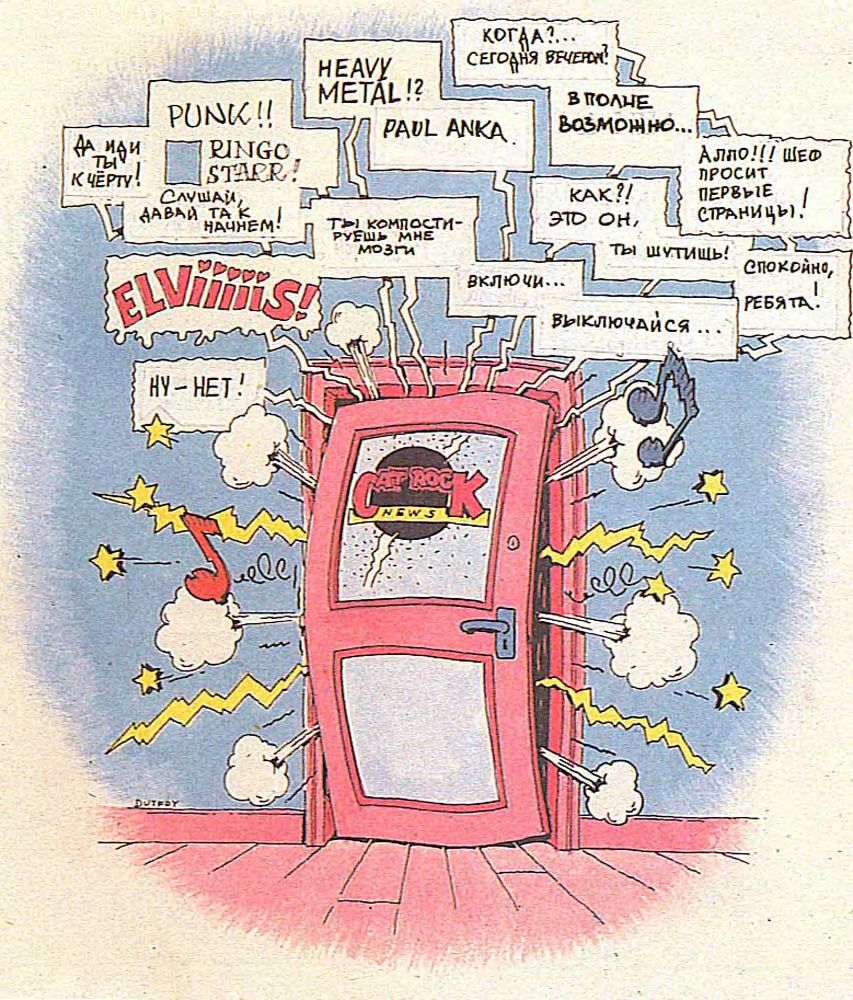 КОГДА?...
СЕГОДНЯ ВЕЧЕРОМ?
HEAVY
METAL!?
ВПОЛНЕ
ВОЗМОЖНО...
PUNK!!
PAUL ANKA.
ДА ИДИ
ТЫ
К ЧЁРТУ!
RINGO
STARR!
АЛЛО!!! ШЕФ
ПРОСИТ
ПЕРВЫЕ
СТРАНИЦЫ!
СЛУШАЙ,
ДАВАЙ ТАК
НАЧНЕМ!
КАК?!
ЭТО ОН,
ТЫ КОМПОСТИ-
РУЕШЬ МНЕ
МОЗГИ
ТЫ ШУТИШЬ!
СПОКОЙНО,
РЕБЯТА!
ELViiiiiiS!
ВКЛЮЧИ...
ВЫКЛЮЧАЙСЯ...
НУ-НЕТ!
CAT ROCK
NEWS
DUTEOY